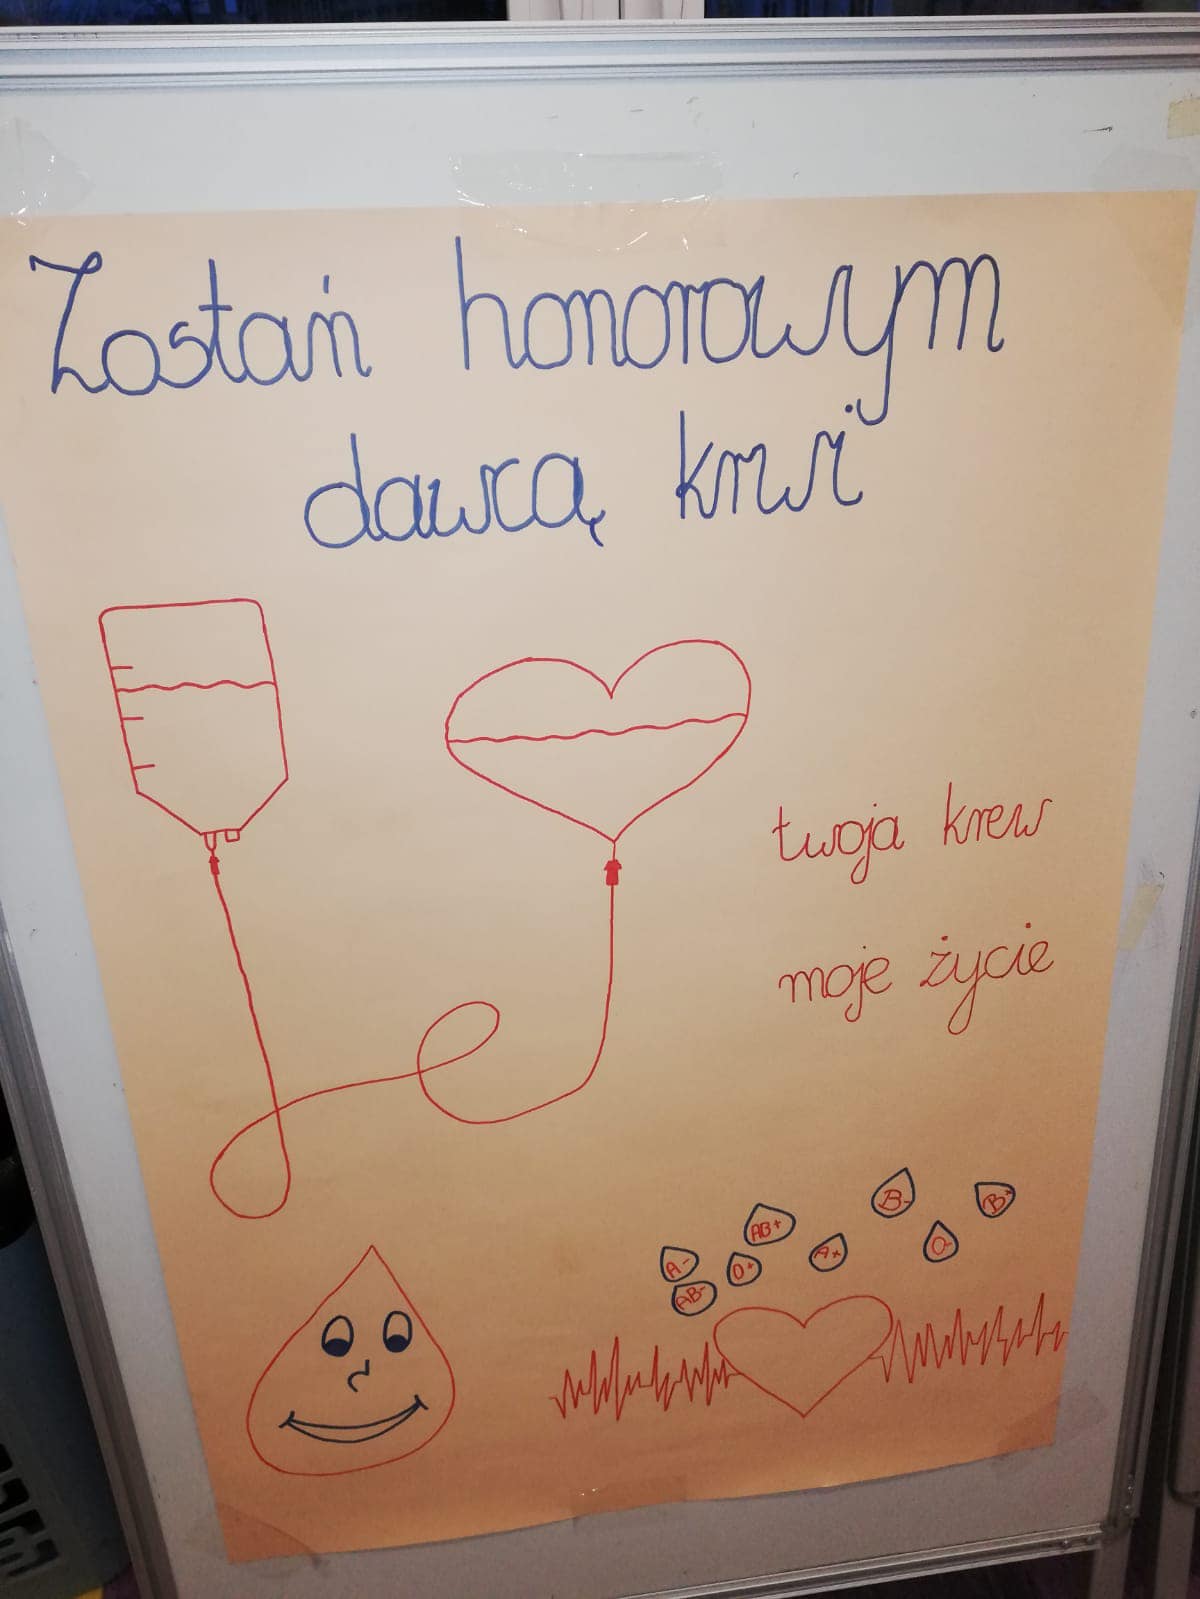 Zostań honorowym
dawcą krwi
twoja krew
moje życie
B-
B+
AB+
A+
O-
A-
O+
AB-